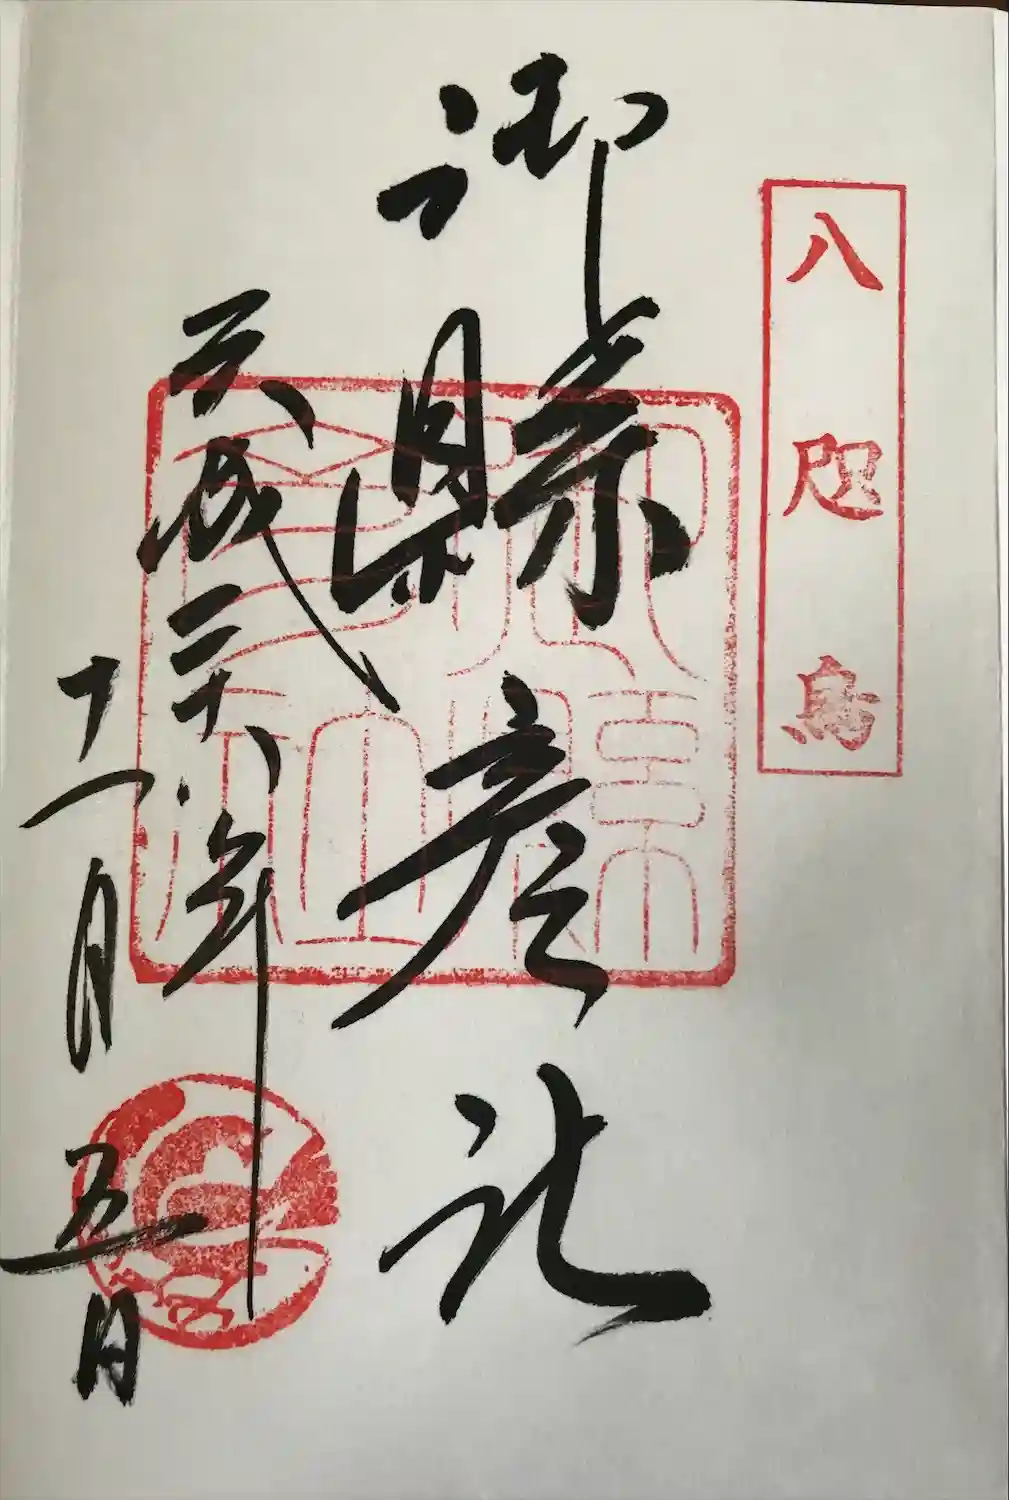 八咫烏
御縣彦社
平成二十八年
十一月五日